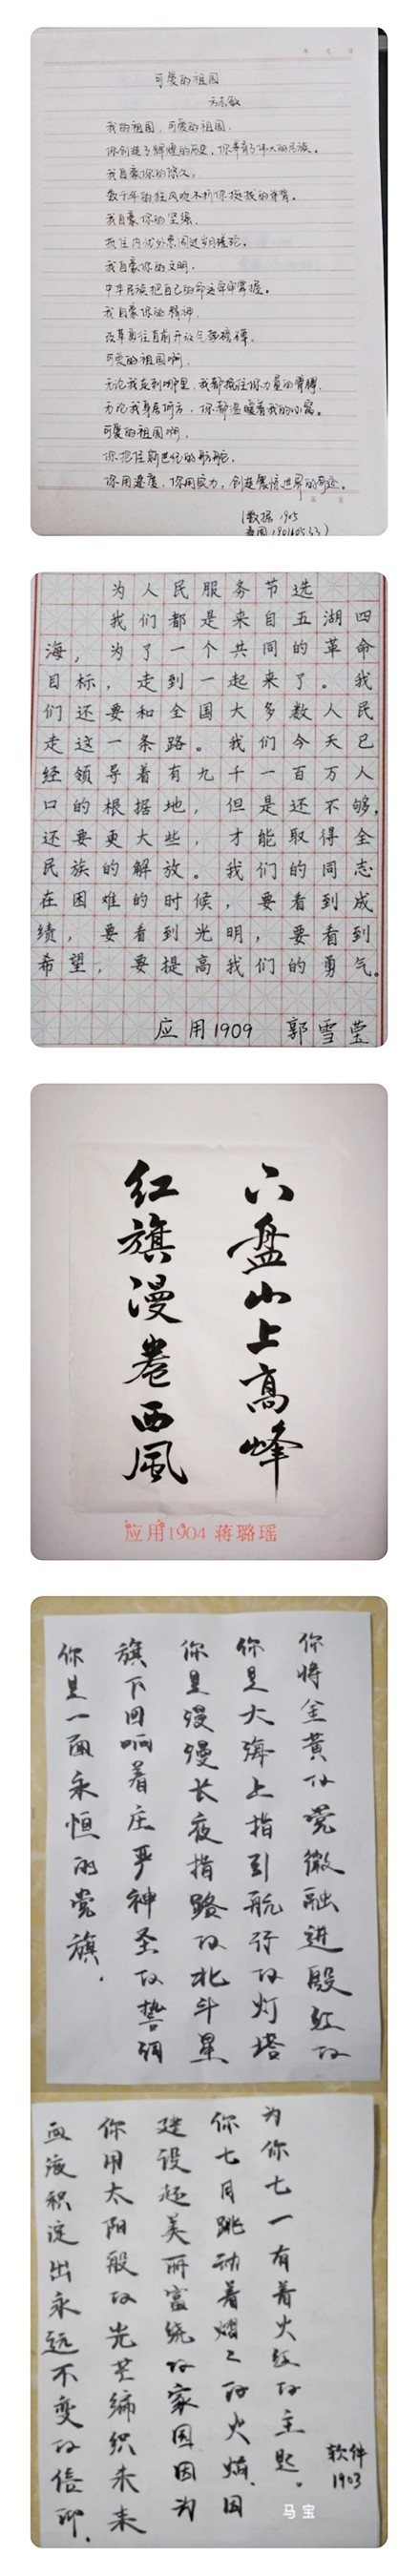 年 月 日
可爱的祖国
方志敏
我的祖国，可爱的祖国，
你创造了辉煌的历史，你养育了伟大的民族。
我自豪你的悠久，
数千年的狂风吹不折你挺拔的脊背。
我自豪你的坚强，
抵住内忧外患闯过岁月蹉跎。
我自豪你的文明，
中华民族把自己的命运牢牢掌握。
我自豪你的精神，
改革勇往直前开放气势磅礴。
可爱的祖国啊，
无论我走到哪里，我都挽住你力量的臂膊，
无论我身居何方，你都温暖着我的心窝。
可爱的祖国啊，
你把住新世纪的航舵，
你用速度，你用实力，创造震惊世界的奇迹。
第 页
(数据1905
190160533)
为人民服务节选
我们都是来自五湖四
海，为了一个共同的革命
目标，走到一起来了。我
们还要和全国大多数人民
走这一条路。我们今天已
经领导着有九千一百万人
口的根据地，但是还不够，
还要更大些，才能取得全
民族的解放。我们的同志
在困难的时候，要看到成
绩，要看到光明，要看到
希望，要提高我们的勇气。
应用1909 郭雪莹
六盘山上高峰
红旗漫卷西風
应用1904 蒋璐瑶
你将金黄的党徽融进殷红的
你是大海上指引航行的灯塔
你是漫漫长夜指路的北斗星
旗下回响着庄严神圣的誓词
你是一面永恒的党旗．
为你七一有着火红的主题。
你七月跳动着熠々的火焰．因
建设起美丽富饶的家园因为
你用太阳般的光芒编织未来
血液积淀出永远不变的信仰．
软件
1903
马宝